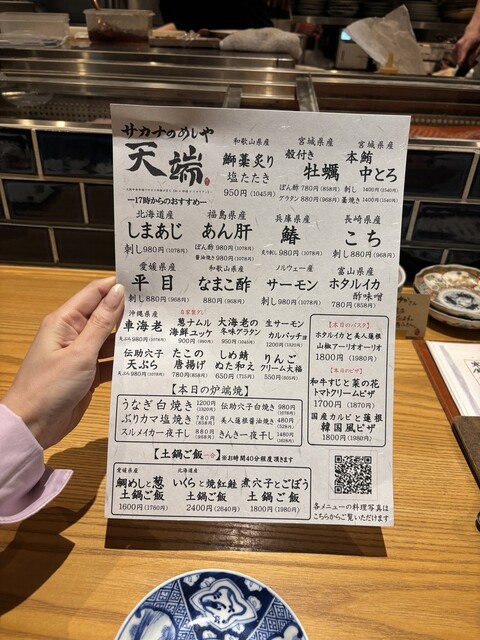 サカナのめしや
天端
ー17時からのおすすめー
和歌山県産
鰤藁炙り
塩たたき
950円(1045円)
宮城県産
殻付き
牡蠣
ぽん酢 780円(858円)
グラタン 880円(968円)
宮城県産
本鮪
中とろ
刺し 1400円(1540円)
藁焼き 1400円(1540円)
北海道産
しまあじ
刺し980円(1078円)
福島県産
あん肝
ぽん酢 980円(1078円)
醤油焼き 980円(1078円)
兵庫県産
鰆
炙り刺し 980円(1078円)
長崎県産
こち
刺し880円(968円)
愛媛県産
平目
刺し880円(968円)
和歌山県産
なまこ酢
880円(968円)
ノルウェー産
サーモン
刺し980円(1078円)
富山県産
ホタルイカ
酢味噌
780円(858円)
沖縄県産
車海老
天ぷら980円(1078円)
葱ナムル
海鮮ユッケ
900円(990円)
大海老の
辛味グラタン
950円(1045円)
生サーモン
カルパッチョ
1200円(1320円)
伝助穴子
天ぷら
天ぷら980円(1078円)
たこの
唐揚げ
780円(858円)
しめ鯖
ぬた和え
650円(715円)
りんご
クリーム大福
550円(605円)
【本日のパスタ】
ホタルイカと美人蓮根
山椒アーリオオーリオ
1800円(1980円)
【本日のピザ】
和牛すじと菜の花
トマトクリームピザ
1700円(1870円)
国産カルビと蓮根
韓国風ピザ
1800円(1980円)
【本日の炉端焼】
うなぎ白焼き 1200円(1320円)
ぶりカマ塩焼き 780円(858円)
スルメイカ一夜干し 880円(968円)
伝助穴子白焼き 980円(1078円)
美人蓮根醤油焼き 480円(528円)
きんき一夜干し 1480円(1628円)
【土鍋ご飯一合】※お時間40分程度頂きます
愛媛県産
鯛めしと葱
土鍋ご飯
1600円(1760円)
北海道産
いくらと焼紅鮭
土鍋ご飯
2400円(2640円)
煮穴子とごぼう
土鍋ご飯
1800円(1980円)
各メニューの料理写真は
こちらからご覧いただけます